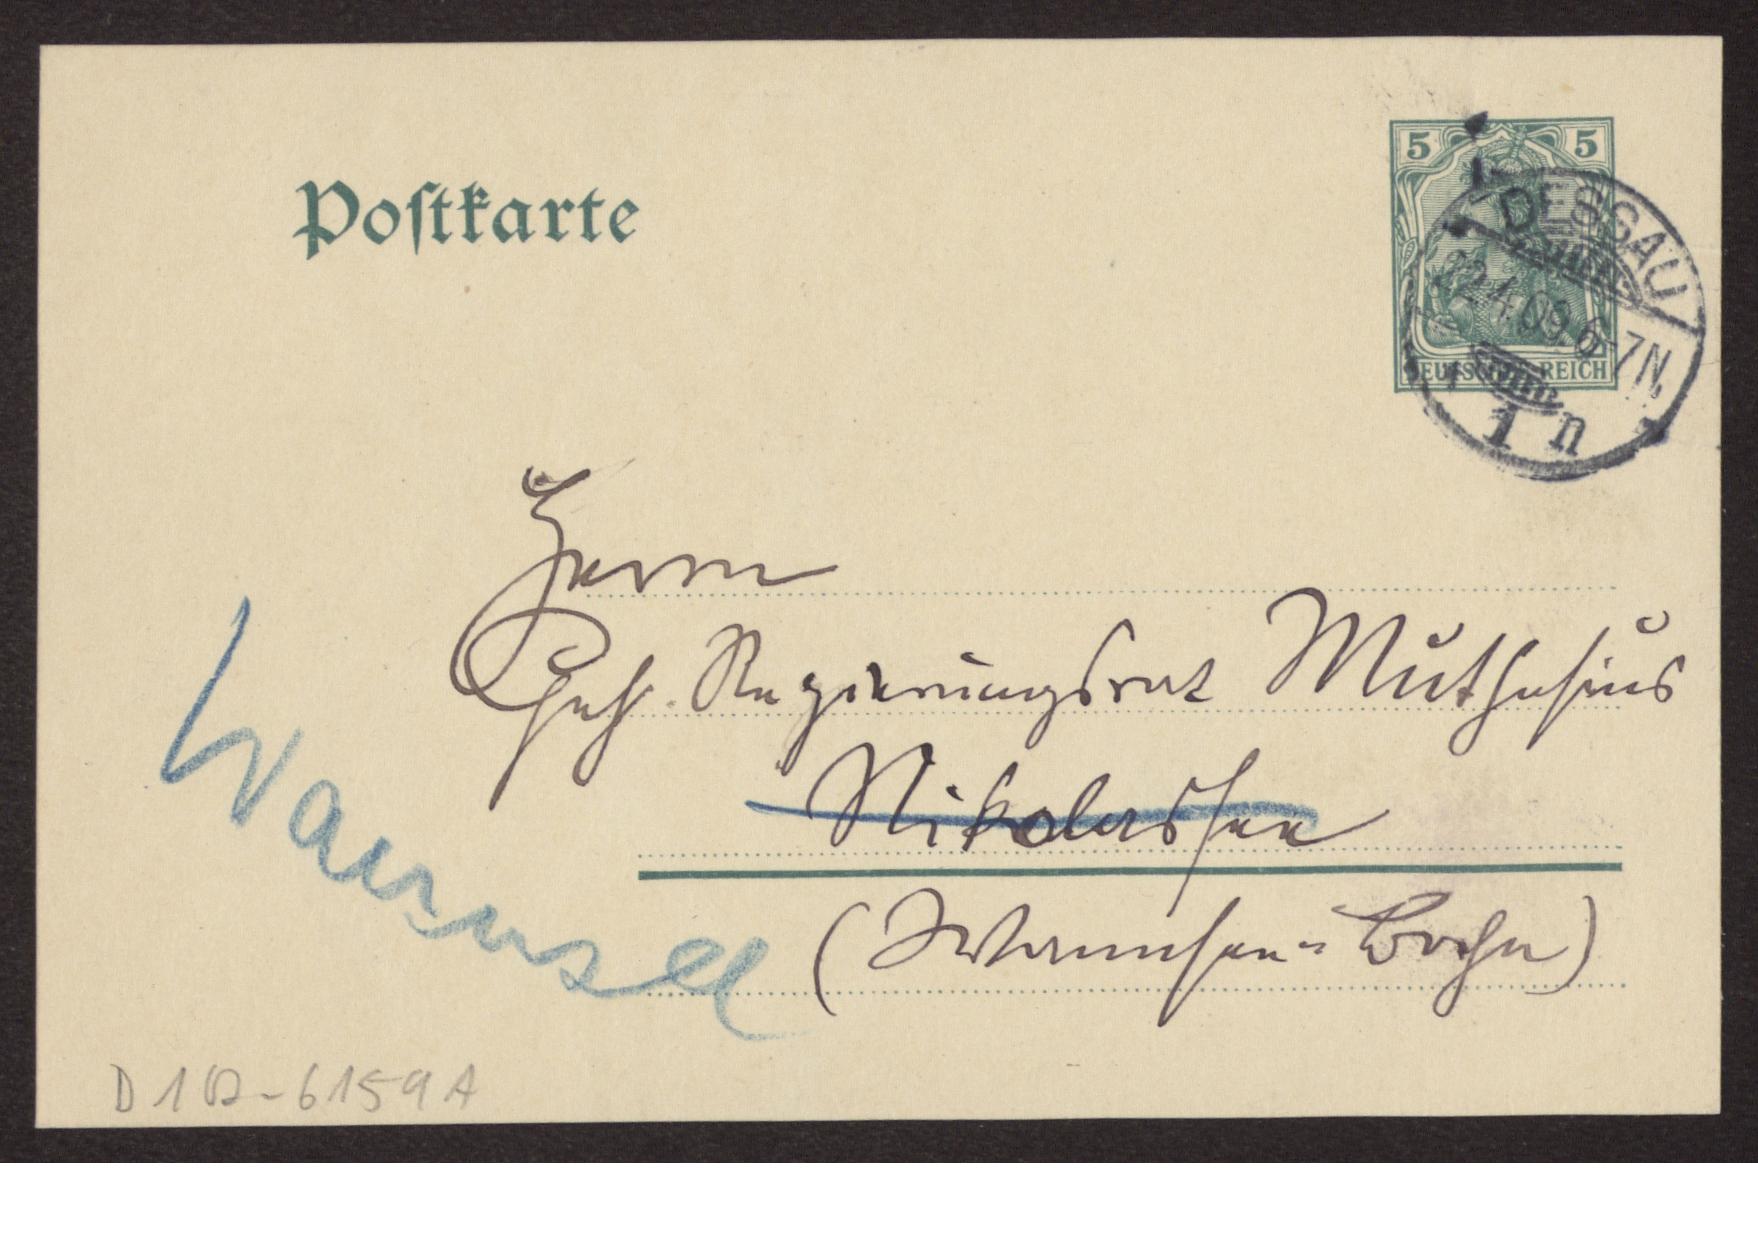 Postkarte
5 5
DEUTSCHES REICH
DESSAU
22.4.09.6-7N.
1 n
Herrn
Geh. Regierungsrat Muthesius
Nikolassee
(Wannsee-Bahn)
Wannsee
D 102-6159A